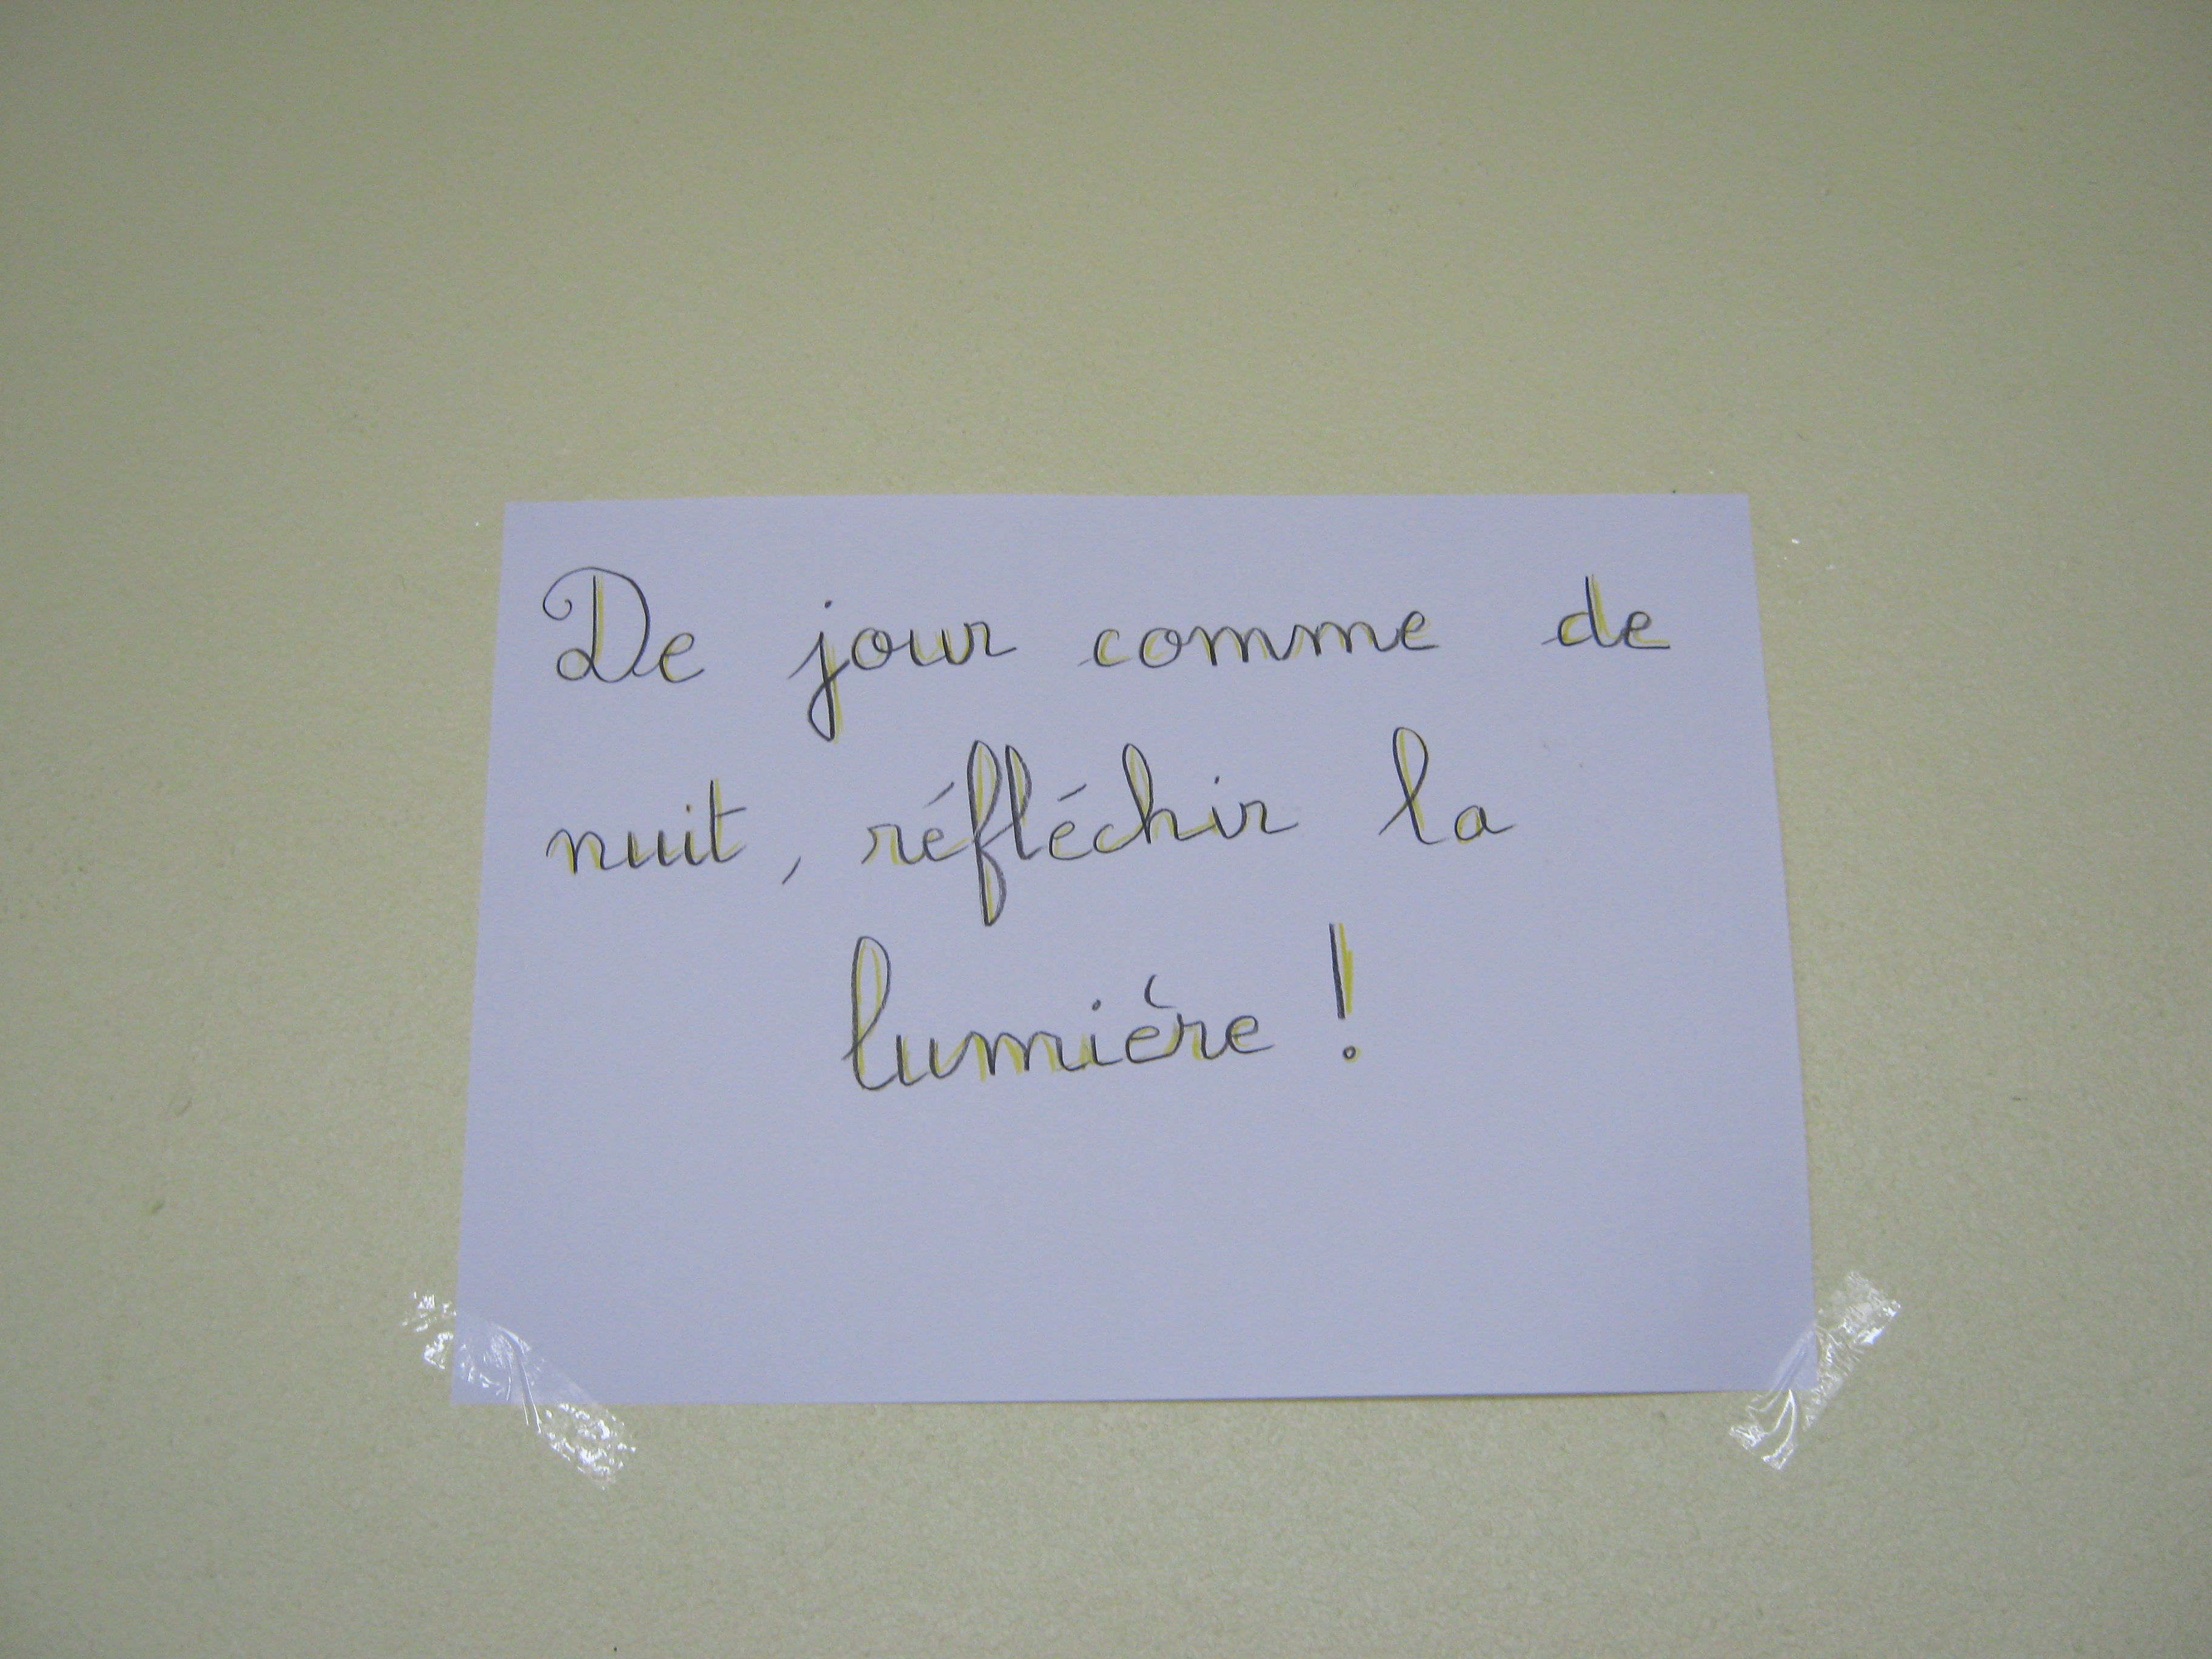 De jour comme de
nuit, réfléchir la
lumière !